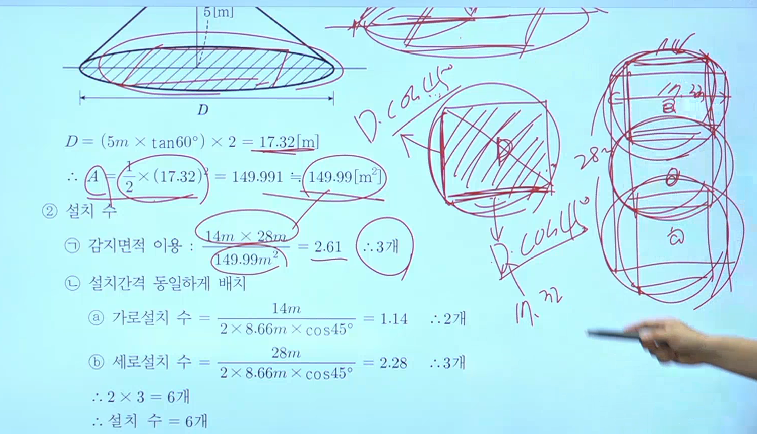 5[m]
D
D = (5m × tan60°) × 2 = 17.32[m]
∴ A = 1/2 × (17.32)² = 149.991 ≒ 149.99[m²]
② 설치 수
㉠ 감지면적 이용 : 14m × 28m / 149.99m² = 2.61 ∴3개
㉡ 설치간격 동일하게 배치
ⓐ 가로설치 수 = 14m / 2×8.66m×cos45° = 1.14 ∴2개
ⓑ 세로설치 수 = 28m / 2×8.66m×cos45° = 2.28 ∴3개
∴ 2 × 3 = 6개
∴ 설치 수 = 6개
D. cos45°
D
D. cos45°
17.32
28m